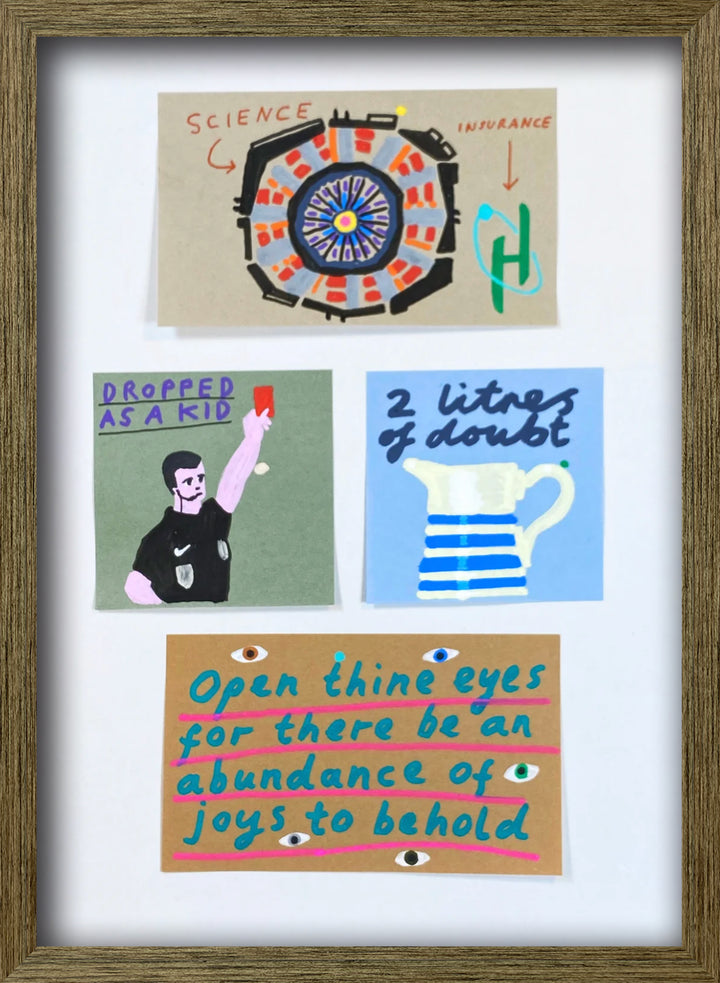 SCIENCE
INSURANCE
H
DROPPED
AS A KID
2 litres
of doubt
Open thine eyes
for there be an
abundance of
joys to behold